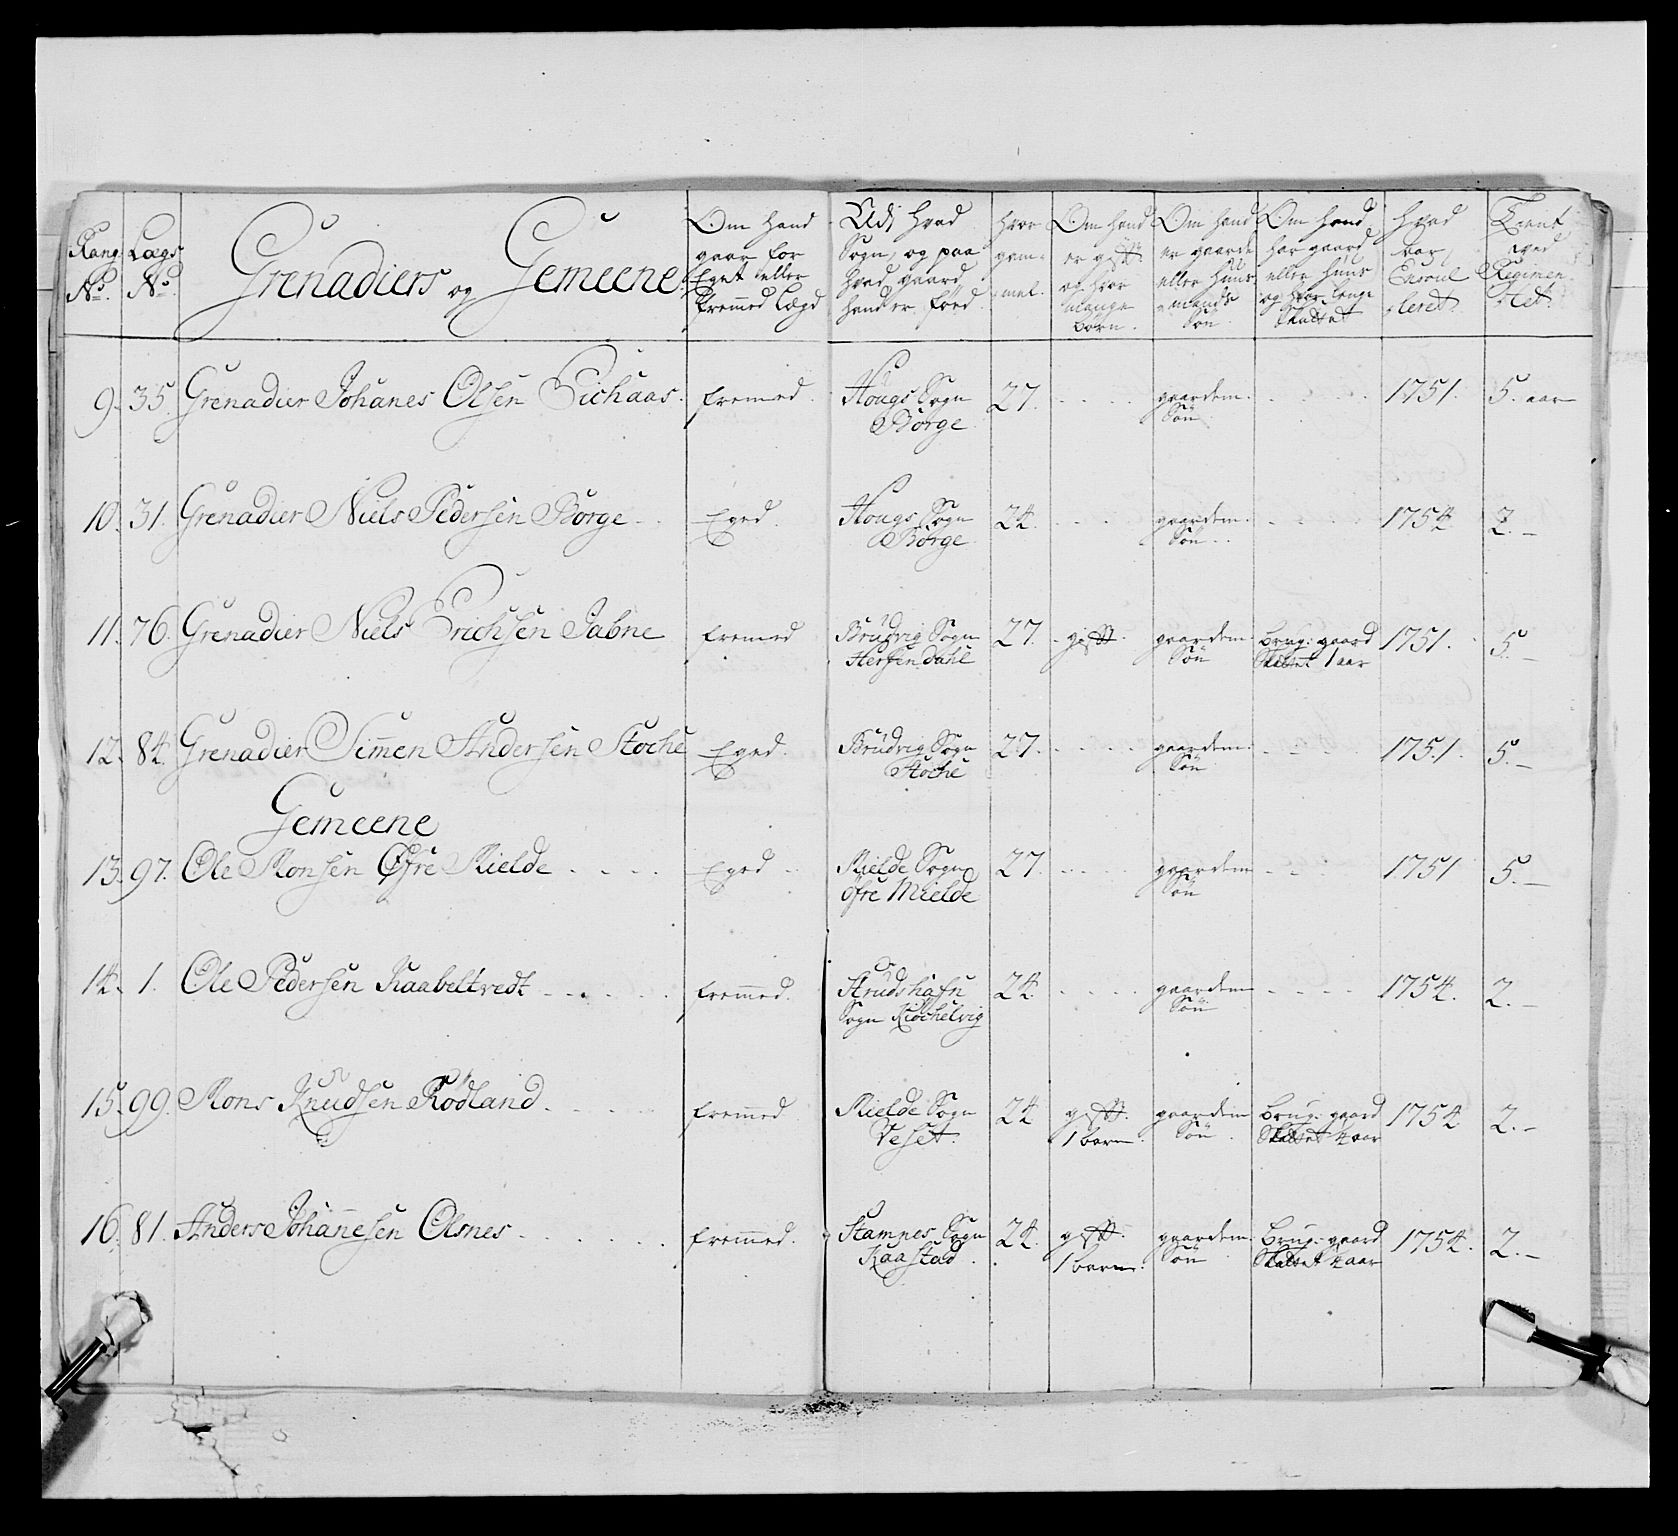 Rang No. Lægs No. Grenadiers og Gemeene. Om Hand gaar for Eget eller Fremmed Lægd Udj Hvad Sogn, og paa Hvad gaard hand er föed. Hvor gam-mel. Om hand er gift og hvor mange börn. Om hand er gaards eller Huus-mands Sön Om hand har gaard eller Huus og hvor lenge Skattet Hvad aar Enroulleret Tient ved Regimentet
9. 35. Grenadier Johanes Olsen Eichaas. fremed. Hougs Sogn Börge 27. gaardem. Sön 1751. 5. aar
10. 31. Grenadier Niels Pedersen Börge Eged. Hougs Sogn Börge 24. gaardem. Sön 1754. 2.
11. 76. Grenadier Niels Erichsen Jabne fremed Brudvig Sogn Herfindahl 27. gift. gaardem. Sön brug: gaard Skattet 1 aar 1751. 5.
12. 84. Grenadier Simen Andersen Stoche Eged. Brudvig Sogn Stoche 27. gaardem. Sön 1751. 5.
Gemeene
13. 97. Ole Monsen Öfre Mielde Eged Mielde Sogn öfre Mielde 27. gaardem Sön 1751 5.
14. 1. Ole Pedersen Kaabeltvedt fremmed. Strudshafn Sogn Kiöchelvig 24. gaardem Sön 1754. 2.
15. 99. Mons Knudsen Rödland fremmed Mielde Sogn Veset. 24 gift. 1 barn. gaardem Sön Brug: gaard Skattet 4 aar 1754 2.
16. 81. Anders Johannesen Olsnes fremmed. Stampnes Sogn Kaastad. 24. gift. 1 barn. gaardem. Sön Brug: gaard Skattet 4 aar 1754. 2.